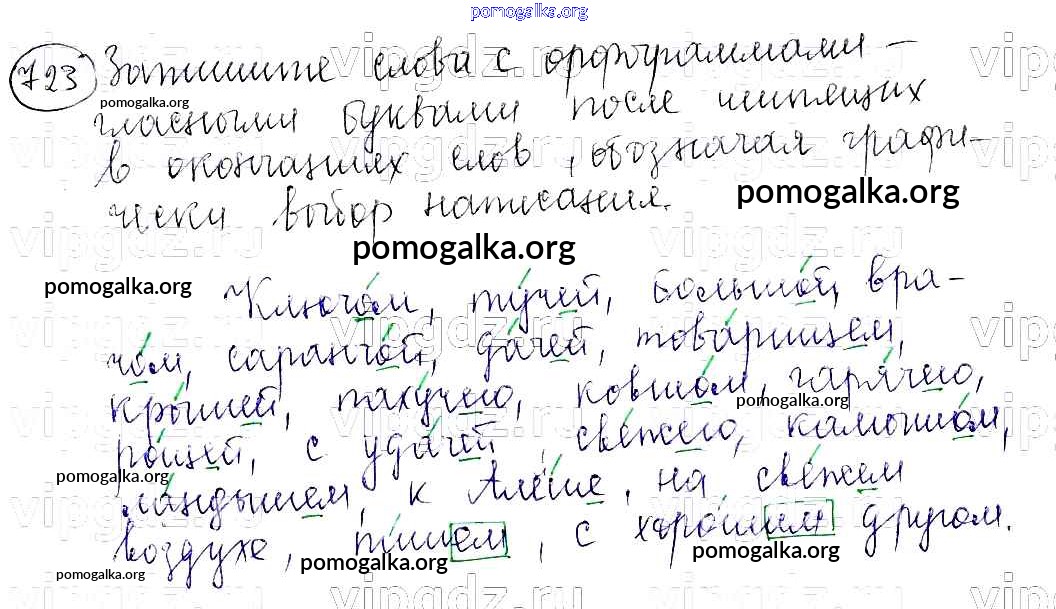 pomogalka.org
723 Запишите слова с орфограммами –
pomogalka.org
гласными буквами после шипящих
в окончаниях слов, обозначая графи-
чески выбор написания.
pomogalka.org
pomogalka.org
pomogalka.org
Ключом, тучей, большой, вра-
чом, саранчой, дачей, товарищем,
крышей, пахучего, ковшом, горячего,
pomogalka.org
рощей, с удачей, свежего, камышом,
pomogalka.org
ландышем, к Алеше, на свежем
pomogalka.org
воздухе, пишем, с хорошим другом.
pomogalka.org
pomogalka.org
pomogalka.org
vipgdz.ru
vipgdz.ru
vipgdz.ru